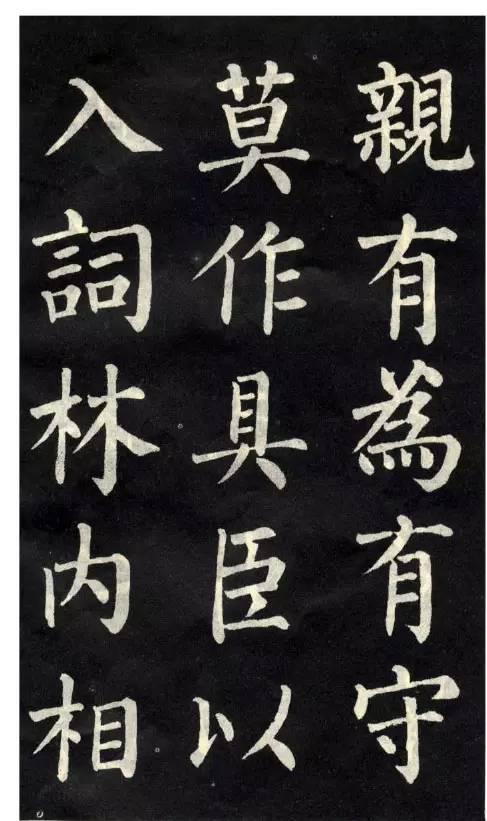 親有為有守
莫作具臣以
入詞林内相